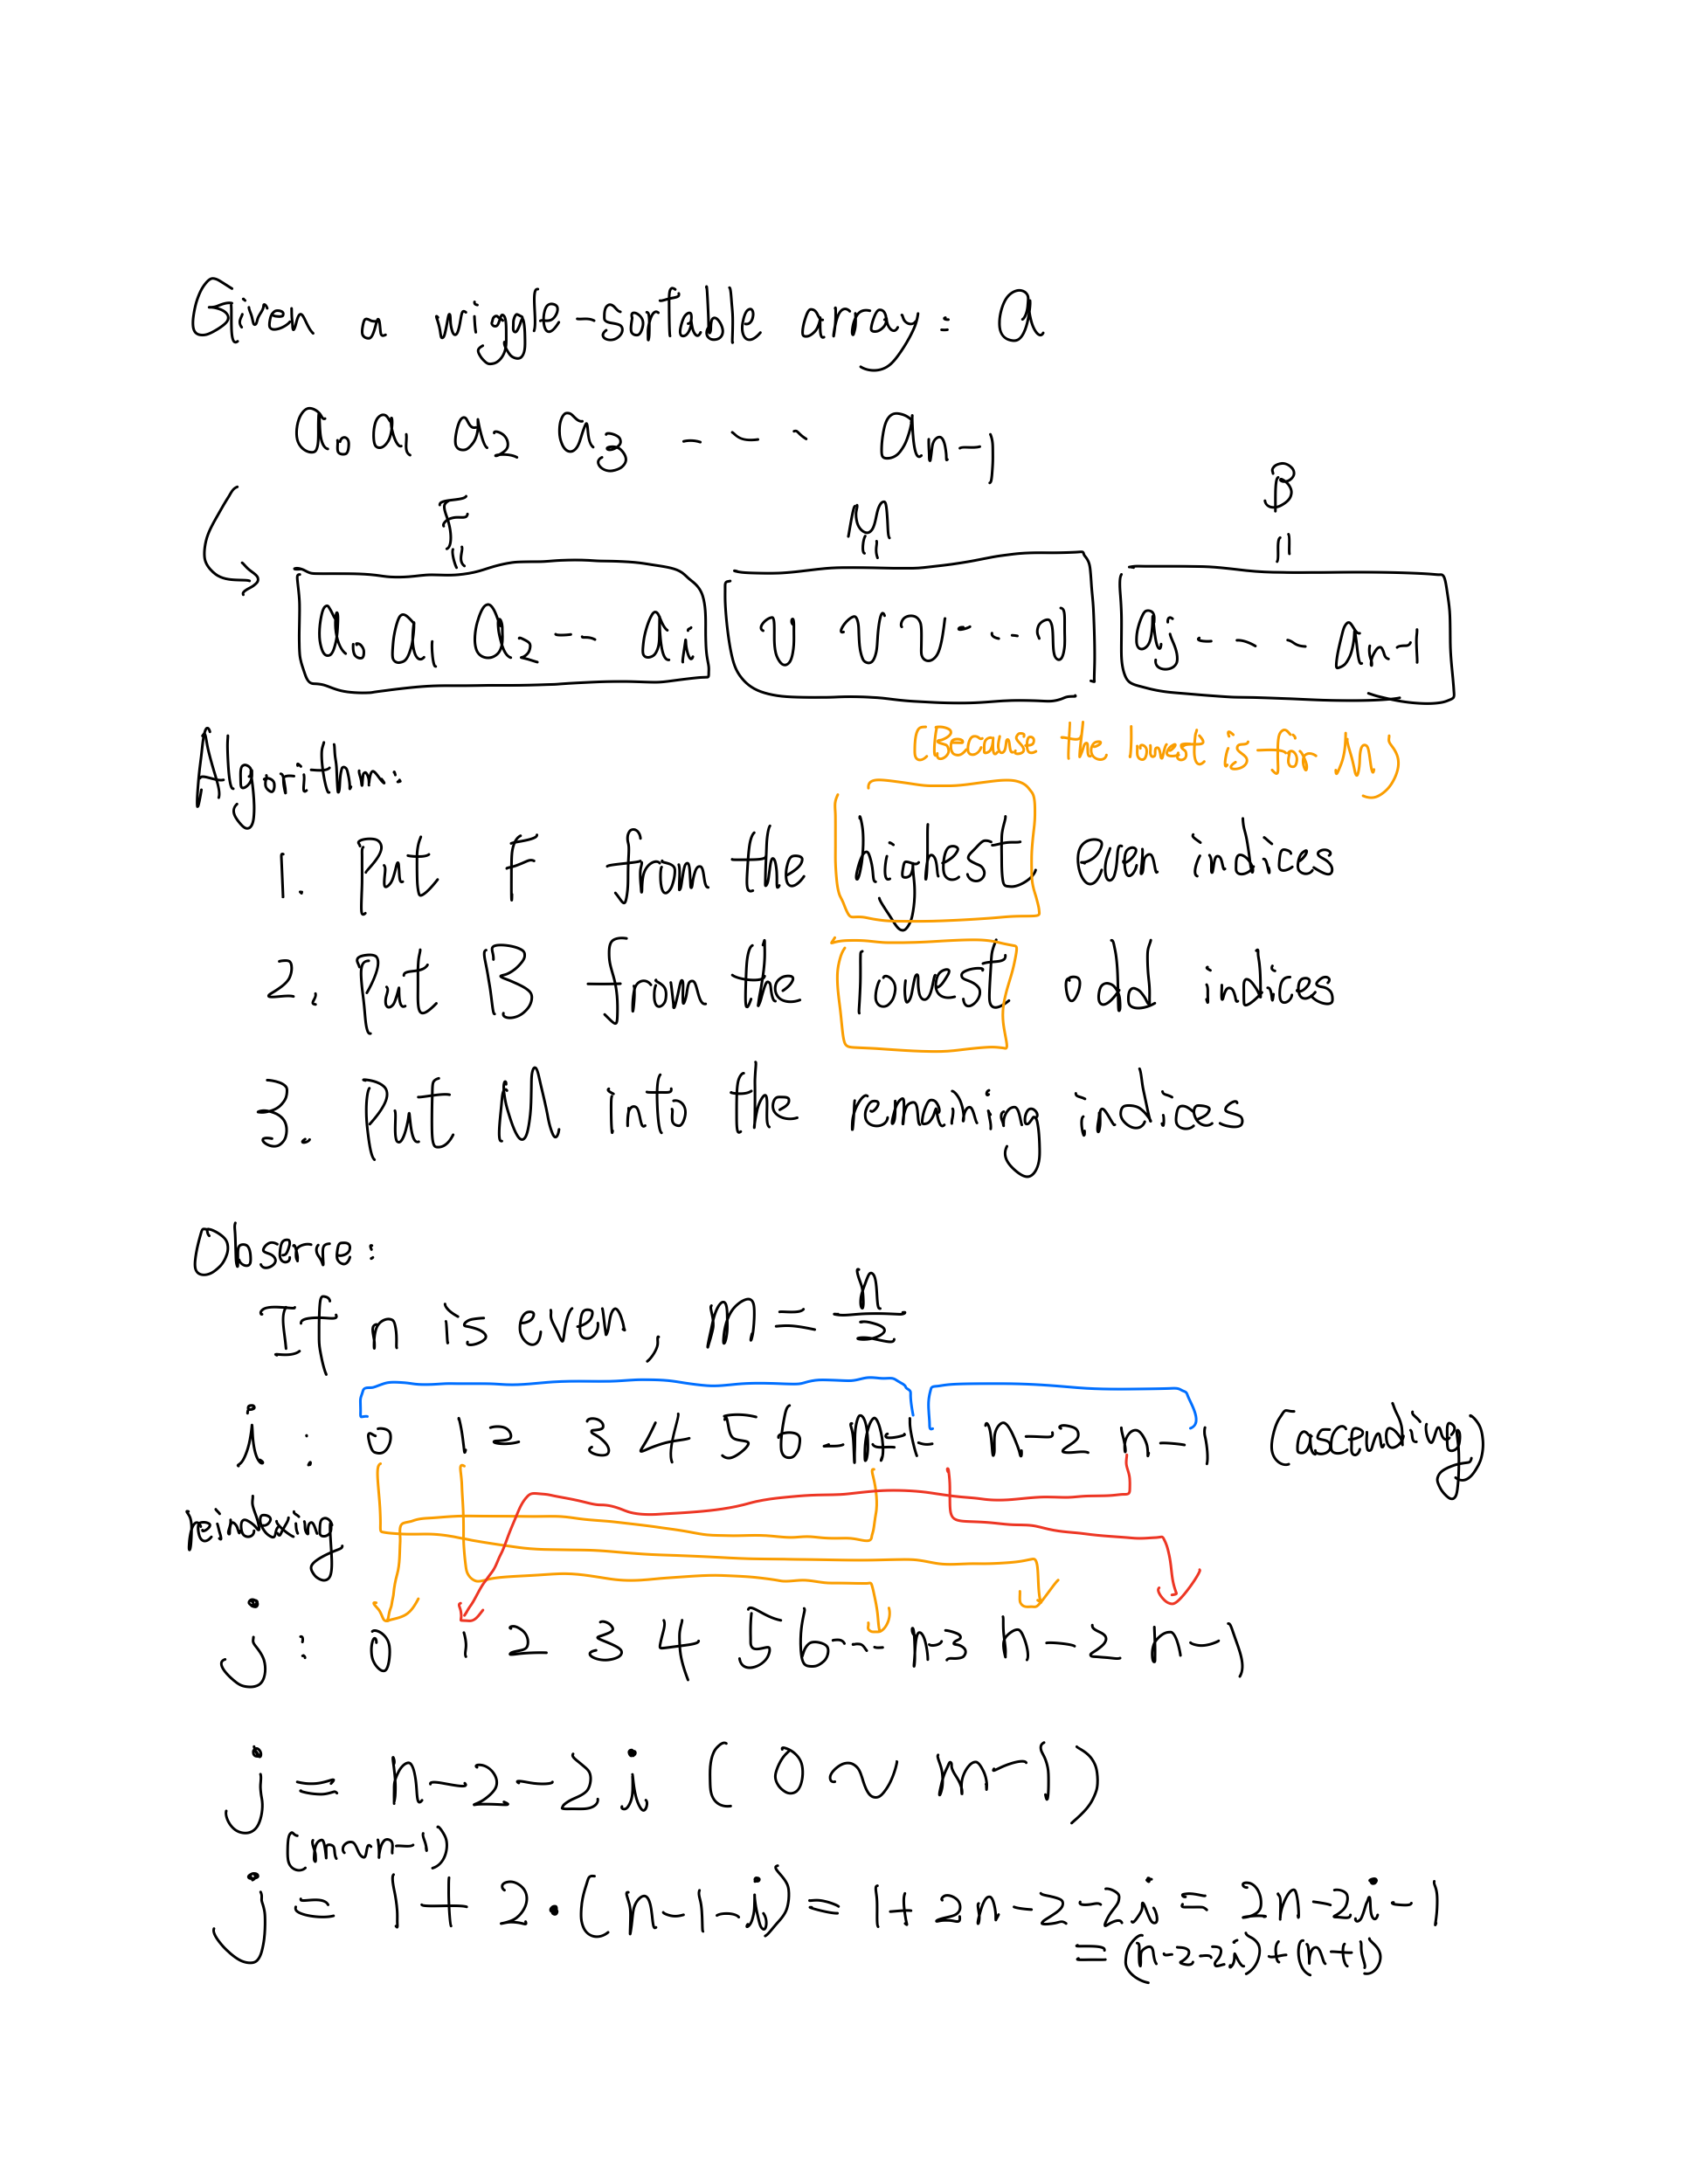 Given a wiggle-sortable array: a
a0 a1 a2 a3 ---- an-1
F M B
" " "
a0 a1 a2 -- ai v v v --- v aj --- an-1
Algorithm:
(Because the lowest is for M)
1. Put F from the highest even indices
2. Put B from the lowest odd indices
3. Put M into the remaining indices
Observe:
If n is even, m = n/2
i: 0 1 2 3 4 5 6 - m-1 - n-2 n-1 (ascending)
reindexing
j: 0 1 2 3 4 5 6 --- n-3 n-2 n-1
j = n-2-2i (0 ~ m-1)
(m~n-1)
j = 1+2·(n-1-i) = 1+2n-2-2i = 2n-2i-1
= (n-2-2i)+(n+1)